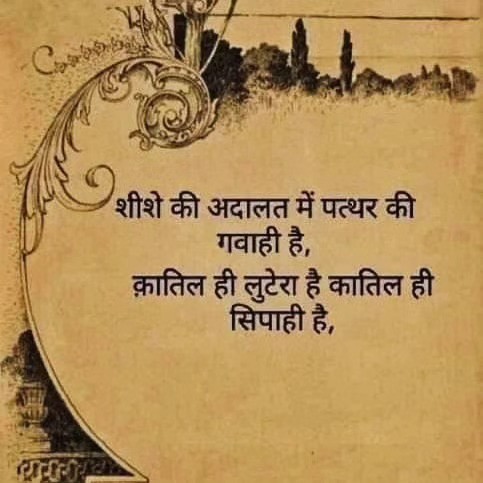 शीशे की अदालत में पत्थर की
गवाही है,
क़ातिल ही लुटेरा है कातिल ही
सिपाही है,